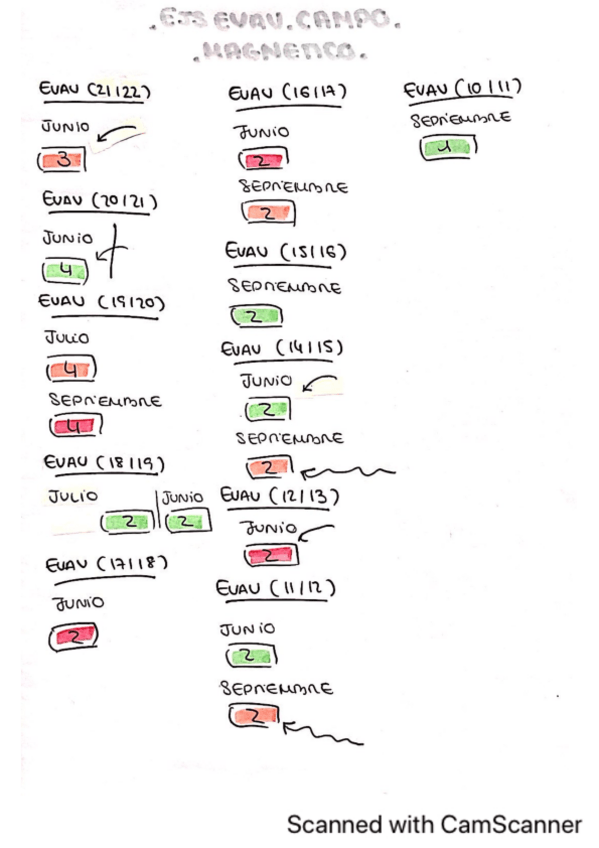 .EJS EVAU.CAMPO.
.MAGNETICO.
EVAU (21/22)
JUNIO
3
EVAU (20/21)
JUNIO
4
EVAU (19/20)
JULIO
4
SEPTIEMBRE
4
EVAU (18/19)
JULIO
2
JUNIO
2
EVAU (17/18)
JUNIO
2
EVAU (16/17)
JUNIO
2
SEPTIEMBRE
2
EVAU (15/16)
SEPTIEMBRE
2
EVAU (14/15)
JUNIO
2
SEPTIEMBRE
2
EVAU (12/13)
JUNIO
2
EVAU (11/12)
JUNIO
2
SEPTIEMBRE
2
EVAU (10/11)
SEPTIEMBRE
1
Scanned with CamScanner